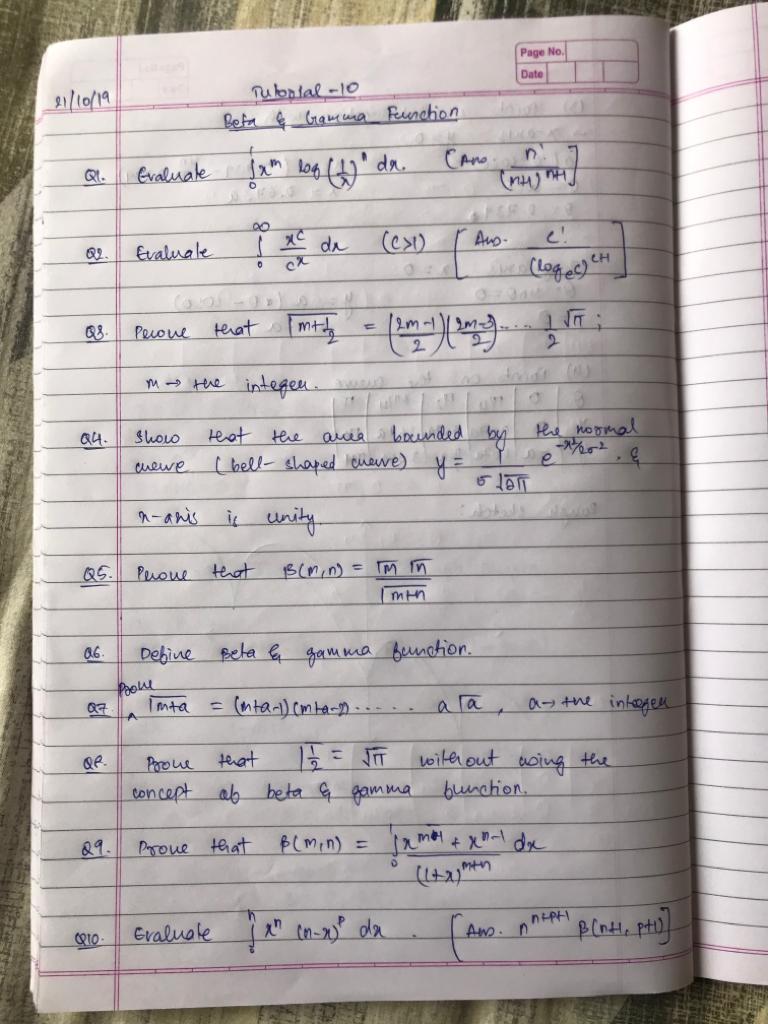 Page No.
Date
21/10/19 Tutorial-10
Beta & Gamma Function
Q1. Evaluate ∫₀¹ xᵐ log (1/x)ⁿ dx. (Ans. n!/(m+1)ⁿ⁺¹]
Q2. Evaluate ∫₀^∞ x^c/c^x dx (c>1) [Ans. c!/(logₑc)^(c+1)]
Q3. Prove that Γ(m+1/2) = ((2m-1)/2)((2m-3)/2)..... 1/2 √π ;
m → +ve integer.
Q4. Show that the area bounded by the normal
curve (bell-shaped curve) y = 1/(σ√(2π)) e^(-x²/2σ²) . &
x-axis is unity.
Q5. Prove that β(m,n) = Γm Γn / Γ(m+n)
Q6. Define Beta & gamma function.
Q7. Prove Γ(m+a) = (m+a-1)(m+a-2)...... a Γa , a → +ve integer
Q8. Prove that Γ(1/2) = √π without using the
concept of beta & gamma function.
Q9. Prove that β(m,n) = ∫₀¹ (x^(m-1) + x^(n-1))/(1+x)^(m+n) dx
Q10. Evaluate ∫₀ⁿ xⁿ (n-x)ᵖ dx . [Ans. n^(n+p+1) β(n+1, p+1)]